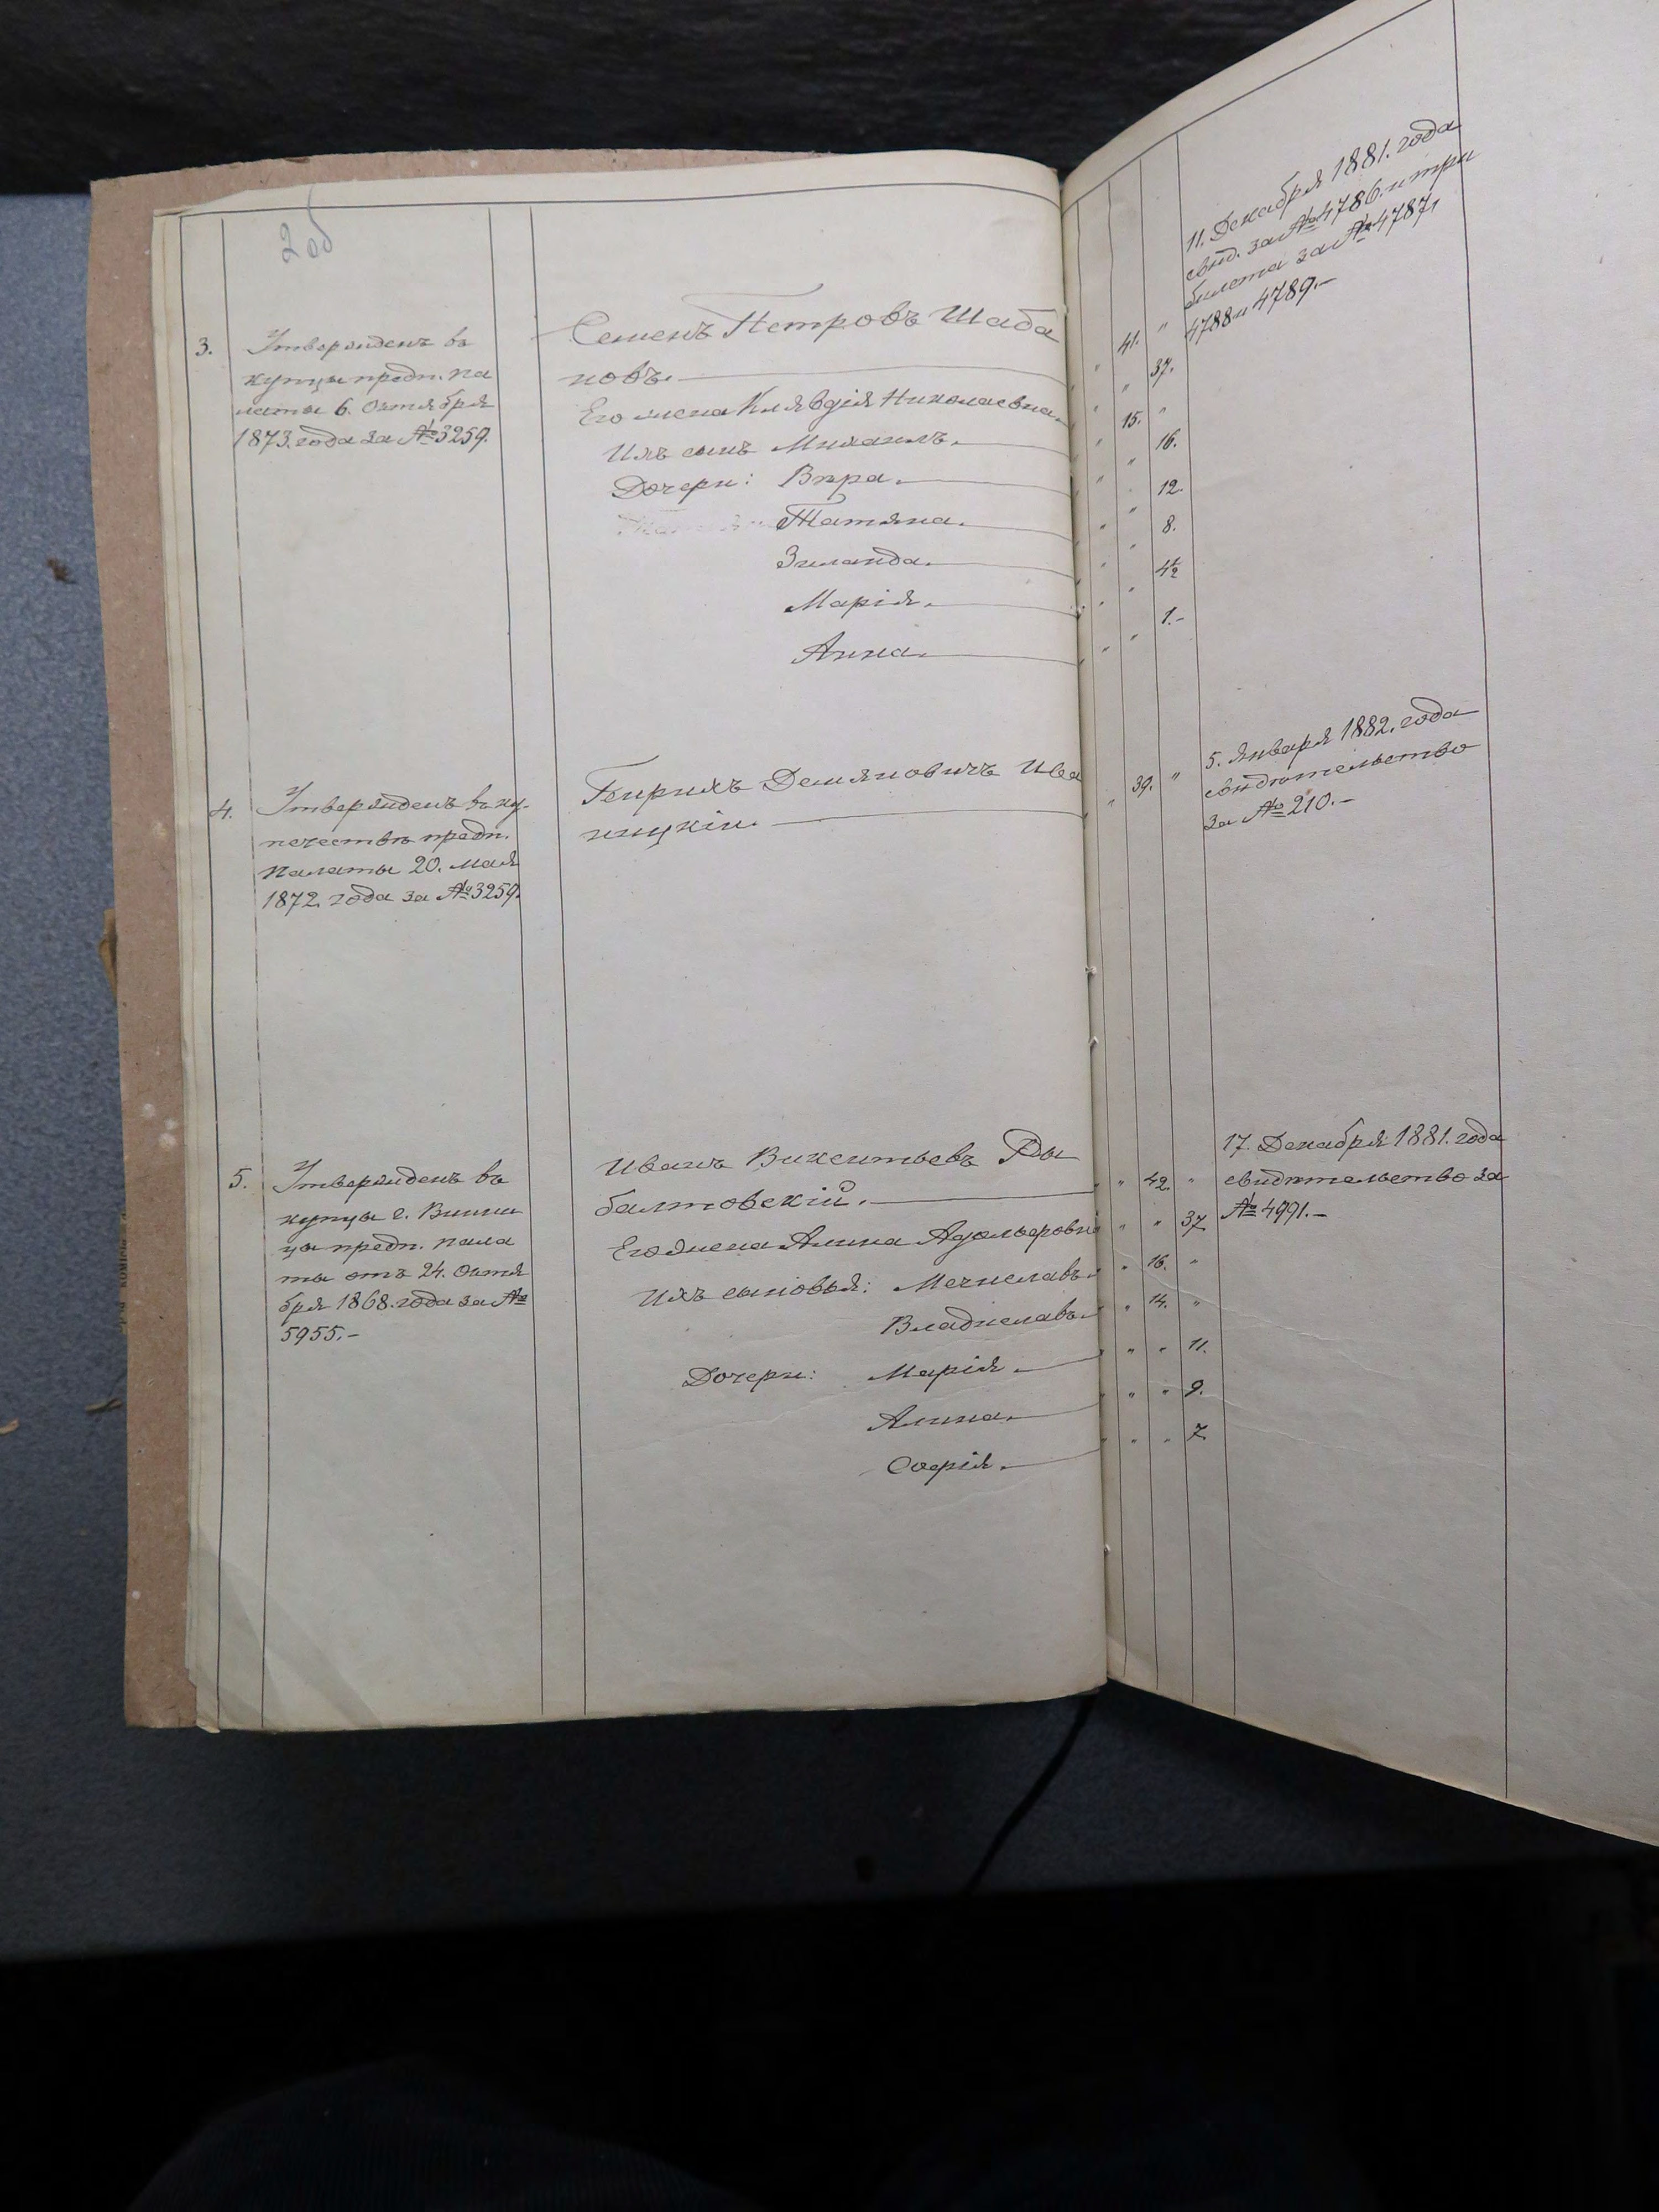 2 об
3.
Утвержденъ въ
купцы предп. па
латы 6. Октября
1873. года за №3259.
Семенъ Петровъ Шаба
новъ.
Его жена Клявдія Николаевна.
Ихъ сынъ Михаилъ.
Дочери: Вѣра.
Татяна.
Зиланда.
Марія.
Анна.
" 41. "
" " 37.
" 15. "
" " 16.
" " 12.
" " 8.
" " 4½
" " 1.-
11. Декабря 1881. года
свид. за №4786. и три
билета за №4787,
4788 и 4789.-
4.
Утвержденъ въ ку-
печествѣ предп.
Палаты 20. Мая
1872. года за №3259.
Генрихъ Демяновичъ Ива
ницкій.
" 39. "
5. Января 1882. года
свидѣтельство
за №210.-
5.
Утвержденъ въ
купцы г. Винни
цы предп. пала
ты отъ 24. Октя
бря 1868. года за №
5955.-
Иванъ Викентьевъ Ры
балтовскій.
Его жена Алина Адольфовна
Ихъ сыновья: Мечиславъ.
Владиславъ.
Дочери: Марія.
Алина.
Софія.
" 42. "
" " 37
" 16. "
" 14. "
" " 11.
" " 9.
" " 7
17. Декабря 1881. года
свидѣтельство за
№4991.-